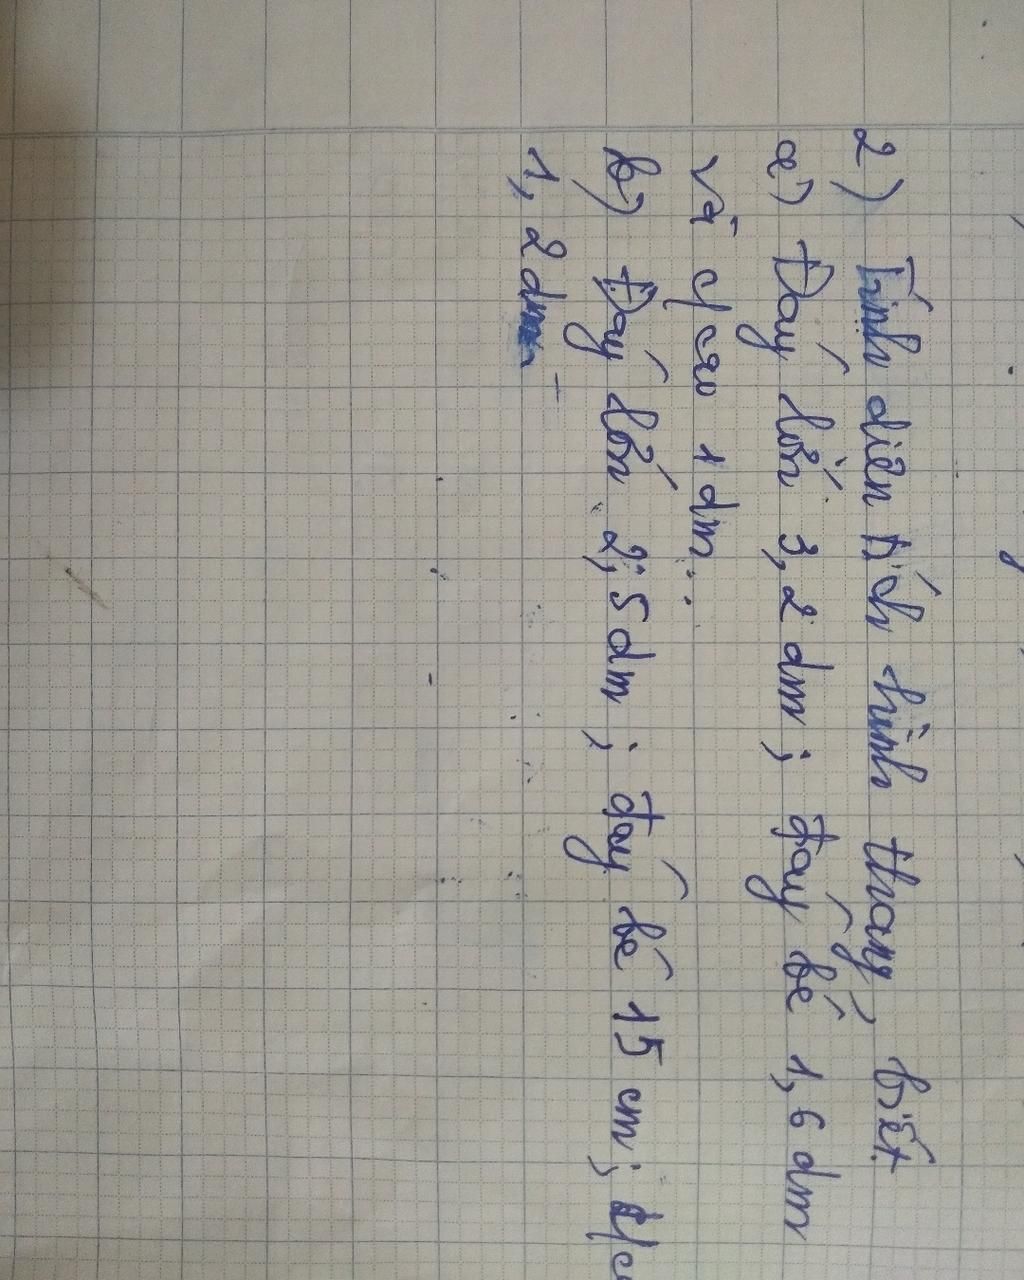 2) Tính diện tích hình thang, biết
a) Đáy lớn 3,2 dm; đáy bé 1,6 dm
và c/cao 1 dm.
b) Đáy lớn 2,5 dm; đáy bé 15 cm;
1,2 dm